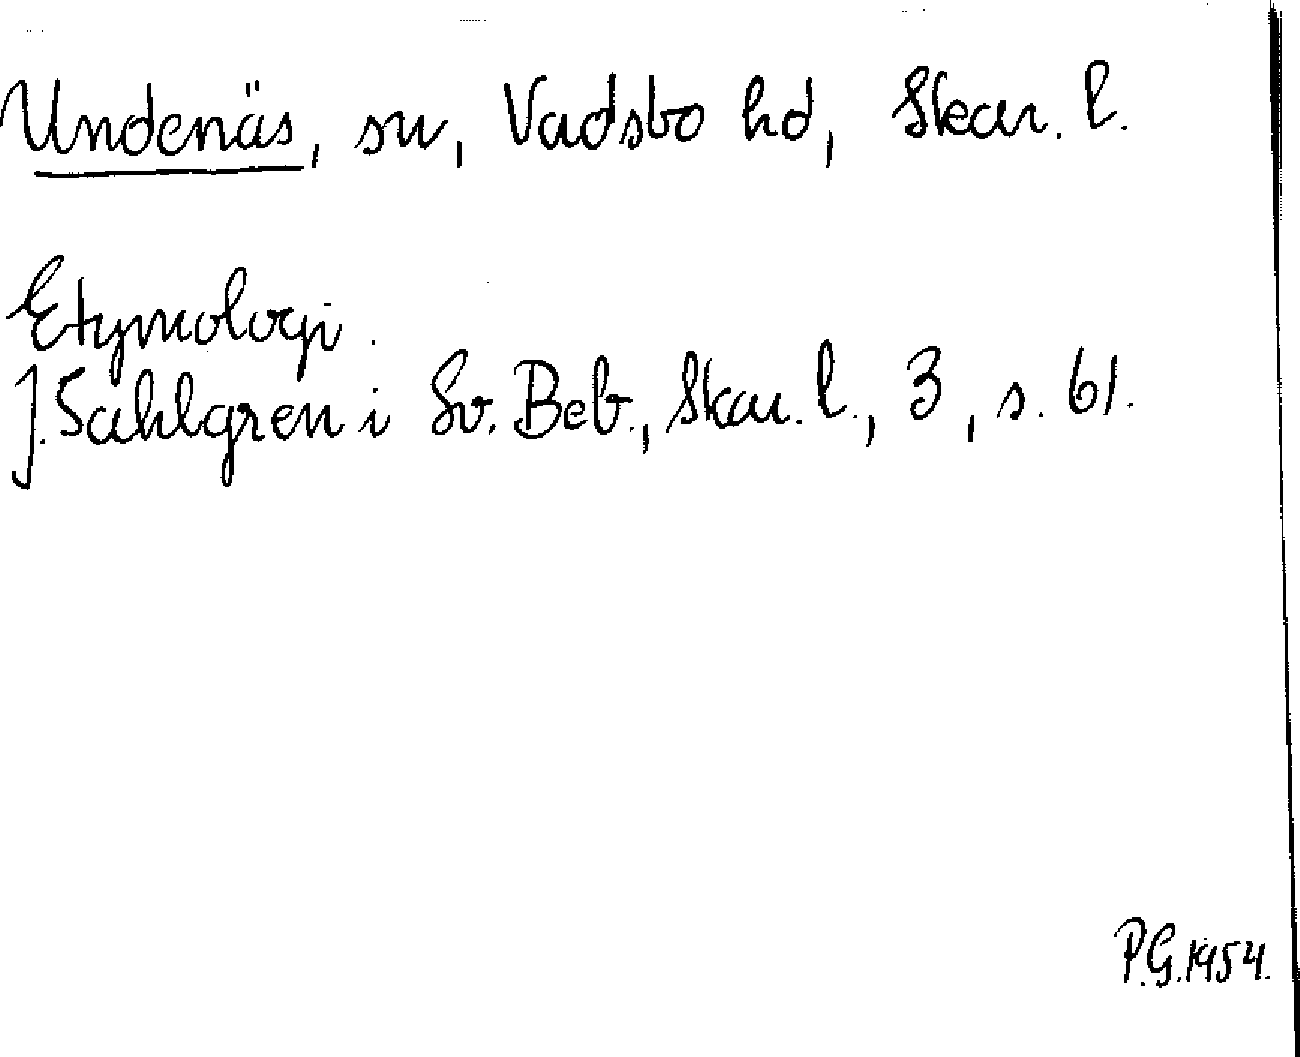 Undenäs, sn, Vadsbo hd, Skar. l.
Etymologi.
J. Sahlgren i Sv. Beb., Skar. l., 3, s. 61.
P.G. 1954.